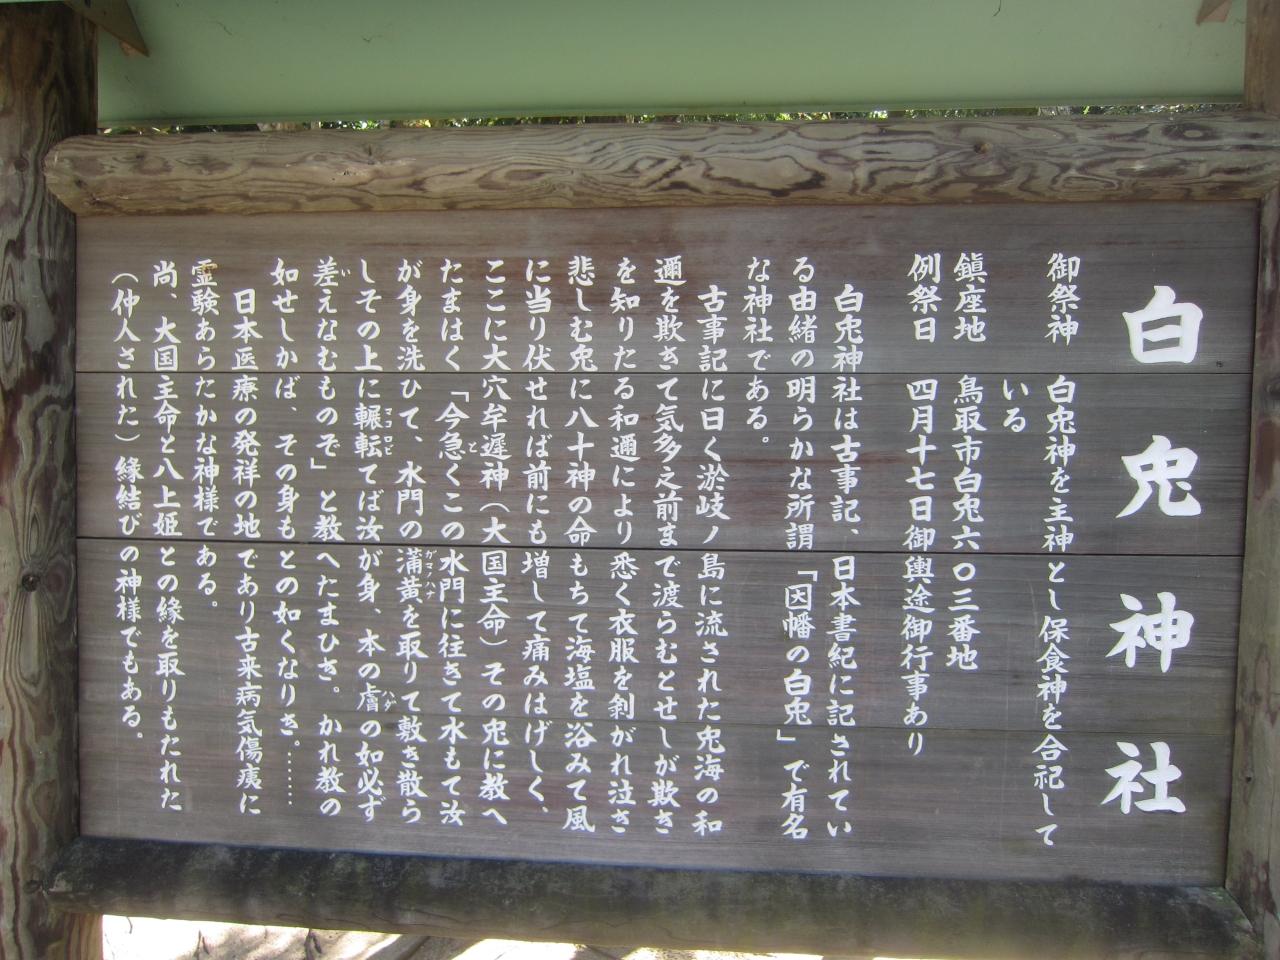 白兎神社
御祭神 白兎神を主神とし保食神を合祀して
いる
鎮座地 鳥取市白兎六〇三番地
例祭日 四月十七日御輿途御行事あり
白兎神社は古事記、日本書紀に記されてい
る由緒の明らかな所謂「因幡の白兎」で有名
な神社である。
古事記に曰く淤岐ノ島に流された兎海の和
邇を欺きて気多之前まで渡らむとせしが欺き
を知りたる和邇により悉く衣服を剥がれ泣き
悲しむ兎に八十神の命もちて海塩を浴みて風
に当り伏せれば前にも増して痛みはげしく、
ここに大穴牟遅神(大国主命)その兎に教へ
たまはく「今急くこの水門に往きて水もて汝
が身を洗ひて、水門の蒲黄を取りて敷き散ら
しその上に輾転てば汝が身、本の膚の如必ず
差えなむものぞ」と教へたまひき。かれ教の
如せしかば、その身もとの如くなりき。……
日本医療の発祥の地であり古来病気傷痍に
霊験あらたかな神様である。
尚、大国主命と八上姫との縁を取りもたれた
(仲人された)縁結びの神様でもある。